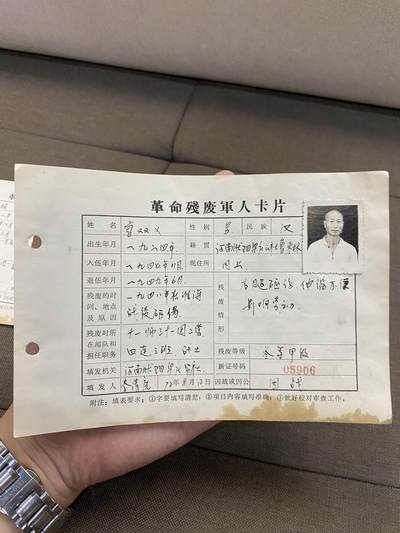 革命殘废軍人卡片
姓名 双义 性别 男 民族 汉
出生年月 籍贯 河南
入伍年月 一九四七年11月 现住所 同上
退伍年月 一九四九年6月
残废的时间、地点及原因 一九四八年 淮海战役负伤
残废情形 右腿 伤 不便
影响劳动
残废时所在部队和担任职务 十一师三十一团二营
四连三班 战士
残废等级 叁等甲级
填发机关 河南
新证号码 05906
填发人 李清 72年8月12日 因战或因公 因战
附注：填表要求：①字要填写清楚；②项目内容填写准确；③做好校对审查工作。